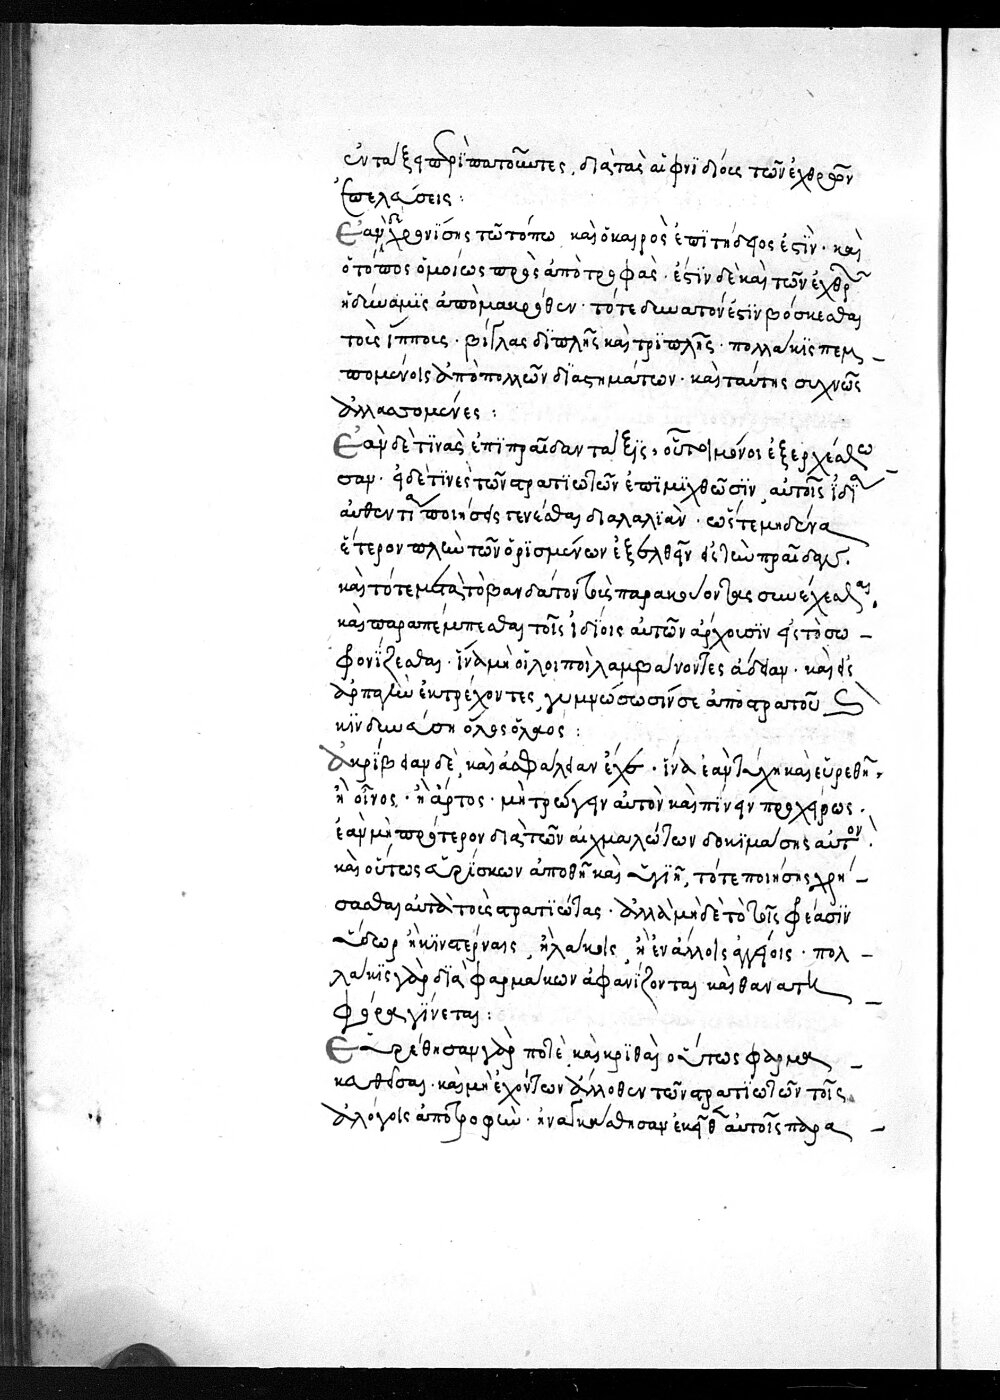 ἐν τάξει περιπατοῦντες, διὰ τὰς αἰφνιδίους τῶν ἐχθρῶν
ἐπελάσεις :
Ἐὰν δὲ χρονίσης τῶ τόπω καὶ ὁ καιρὸς ἐπιτήδειος ἐστὶν · καὶ
ὁ τόπος ὁμοίως πρὸς ἀποτροφὰς · ἐστὶν δὲ καὶ τῶν ἐχθρῶν
ἡ δύναμις ἀπὸ μακρόθεν · τότε δυνατόν ἐστὶν βόσκεσθαι
τοὺς ἵππους · βίγλας διπλῆς καὶ τριπλῆς · πολλάκις πεμ
πομένοις ἀπὸ πολλῶν διαστημάτων · καὶ ταύτης συχνῶς
ἀλλασσομένες :
Ἐὰν δέ τινας ἐπὶ πραῖδαν τάξῃς, οὗτοι μόνοι ἐξερχέσθω
σαν · εἰ δέ τινες τῶν στρατιωτῶν ἐπιμιχθῶσιν αὐτοῖς ἰδία
αὐθεντία ποιήσεις γενέσθαι διαλαλιὰν · ὥστε μηδένα
ἕτερον πλεὺ τῶν ὁρισμένων ἐξελθεῖν εἰς τὴν πραῖδαν.
καὶ τότε μετὰ τὸ βανδάτον τοὺς παρακούοντας συνέχεσθαι,
καὶ παραπέμπεσθαι τοῖς ἰδίοις αὐτῶν ἄρχουσιν εἰς τὸ σω
φρονίζεσθαι · ἵνα μὴ οἱ λοιποὶ λαμβάνοντες ἄδειαν · καὶ εἰς
ἁρπαγὴν ἐκτρέχοντες, γυμνώσωσίν σε ἀπὸ στρατοῦ καὶ
κινδυνεύση ὅλος ὄλεθρος :
Ἀκρίβειαν δὲ καὶ ἀσφάλειαν ἔχε · ἵνα ἐὰν τάχη καὶ εὑρεθῆ,
ἢ οἶνος · ἢ ἄρτος · μὴ τρώγειν αὐτὸν καὶ πίνειν προχείρως ·
ἐὰν μὴ πρότερον διὰ τῶν αἰχμαλώτων δοκιμάσης αὐτὸν ·
καὶ οὕτως εὑρίσκων ἀποθῆ καὶ ὑγιῆ, τότε ποιήσης χρή
σασθαι αὐτὰ τοὺς στρατιώτας · ἀλλὰ μηδὲ τὸ τοῖς φρέασιν
ὕδωρ ἢ κινστέρναις, ἢ λάκοις, ἢ ἐν ἄλλοις ἀγγείοις · πολ
λάκις γὰρ διὰ φαρμάκων ἀφανίζονται καὶ θανατη
φόρα γίνεται :
Εὑρέθησαν γὰρ ποτὲ καὶ κριθαὶ οὕτως φαρμα
κευθεῖσαι · καὶ μὴ ἐχόντων ἄλλοθεν τῶν στρατιωτῶν τοῖς
ἀλόγοις ἀποτροφὴν · ἠναγκάσθησαν ἐκ τῶν αὐτοῖς παρα